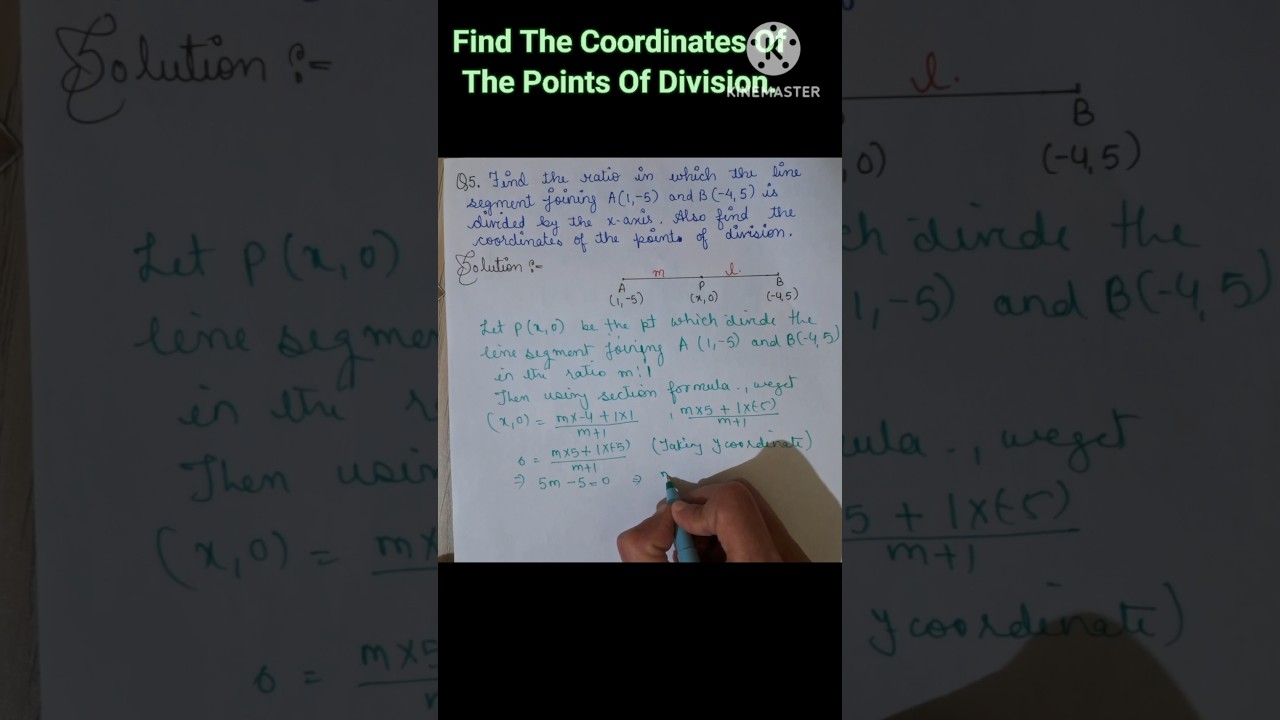 Find The Coordinates Of
The Points Of Division.
KINEMASTER
Q5. Find the ratio in which the line
segment joining A(1,-5) and B(-4,5) is
divided by the x-axis. Also find the
coordinates of the points of division.
Solution :-
m l.
A P B
(1,-5) (x,0) (-4,5)
Let P(x,0) be the pt which divide the
line segment joining A (1,-5) and B(-4,5)
in the ratio m:1
Then using section formula., we get
(x,0) = mx-4+1x1 , mx5 + 1x(-5)
m+1 m+1
0 = mx5+1x(-5) (Taking y coordinate)
m+1
⇒ 5m -5=0 ⇒
Solution :-
l.
B
0) (-4,5)
Let P(x,0) ch divide the
line segme 1,-5) and B(-4,5)
in the r
Then usi ula., we get
(x,0) = mx 5 + 1x(-5)
m+1
y coordinate)
0 = mx5